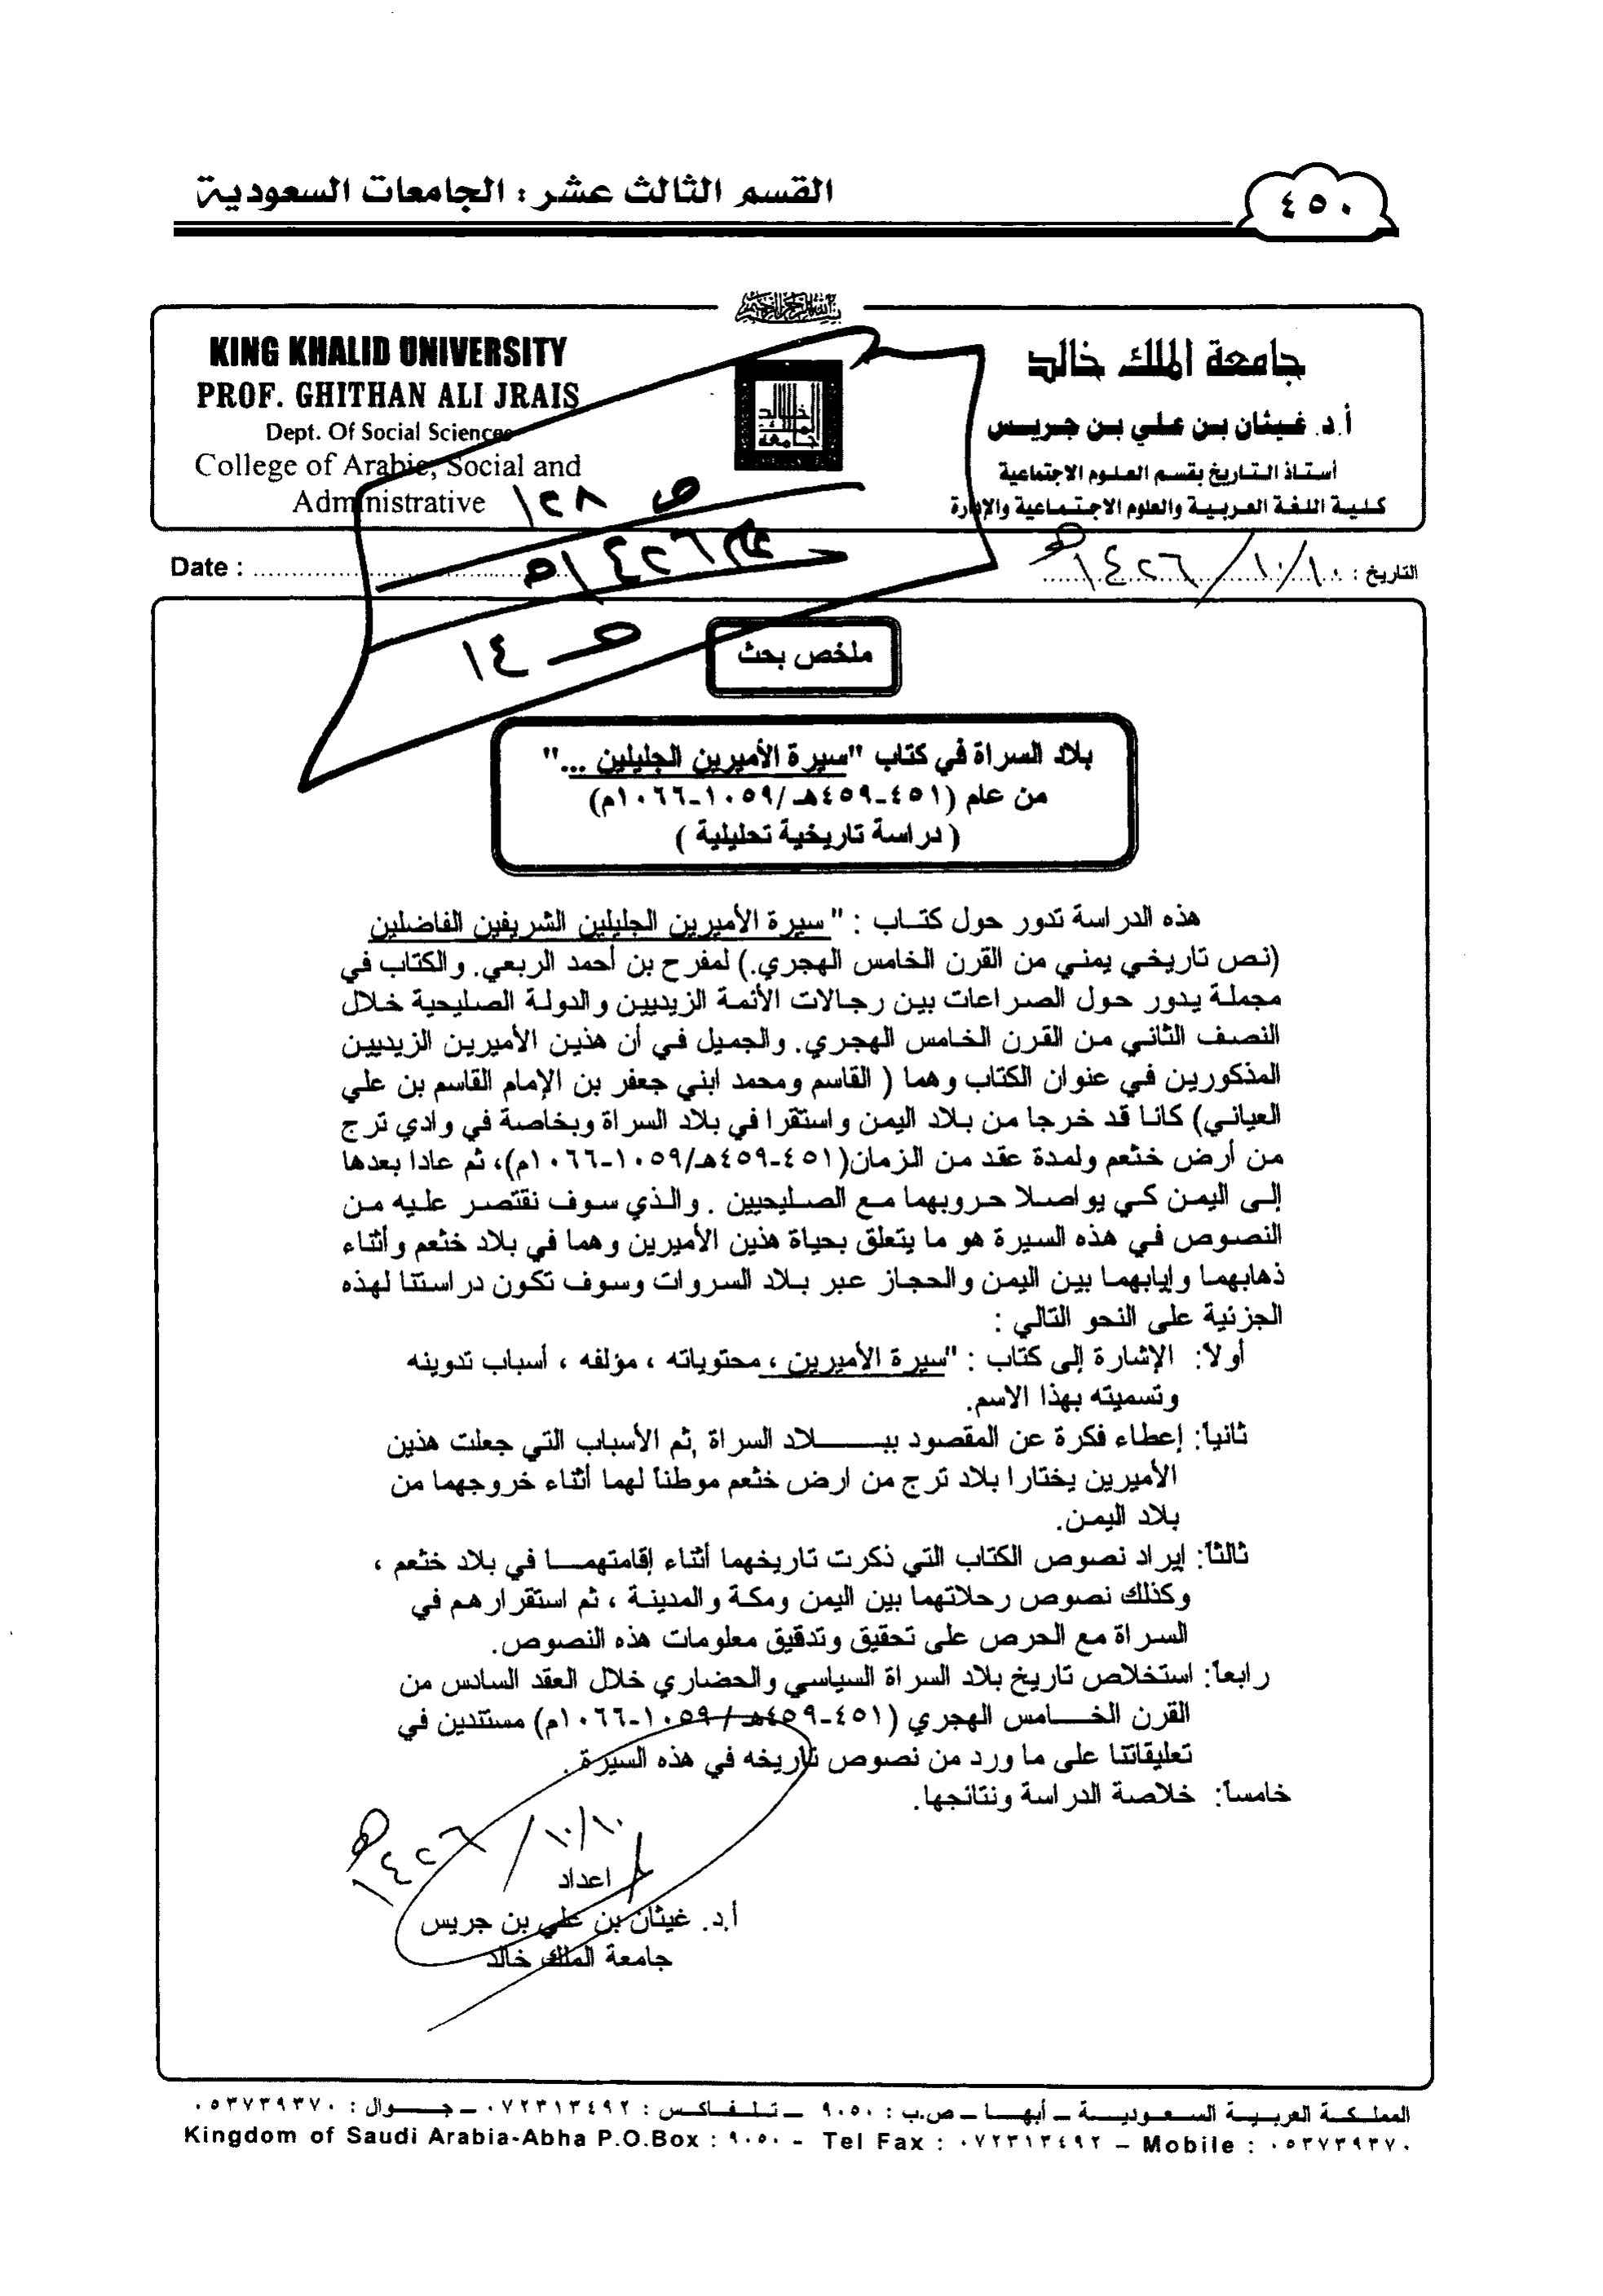 القسم الثالث عشر : الجامعات السعودية
٤٥٠
بسم الله الرحمن الرحيم
KING KHALID UNIVERSITY
PROF. GHITHAN ALI JRAIS
Dept. Of Social Sciences
College of Arabic, Social and
Administrative
جامعة الملك خالد
جامعة الملك خالد
أ.د. غيثان بن علي بن جريس
أستاذ التاريخ بقسم العلوم الاجتماعية
كلية اللغة العربية والعلوم الاجتماعية والإدارة
ص ١٢٨
١٤٢٦هـ
ص ١٤
Date : ........................
التاريخ : ١٠/١٠/١٤٢٦هـ
ملخص بحث
بلاد السراة في كتاب "سيرة الأميرين الجليلين ..."
من عام (٤٥١-٤٥٩هـ/١٠٥٩-١٠٦٦م)
( دراسة تاريخية تحليلية )
هذه الدراسة تدور حول كتاب : " سيرة الأميرين الجليلين الشريفين الفاضلين
(نص تاريخي يمني من القرن الخامس الهجري.) لمفرح بن أحمد الربعي. والكتاب في
مجملة يدور حول الصراعات بين رجالات الأئمة الزيديين والدولة الصليحية خلال
النصف الثاني من القرن الخامس الهجري. والجميل في أن هذين الأميرين الزيديين
المذكورين في عنوان الكتاب وهما ( القاسم ومحمد ابني جعفر بن الإمام القاسم بن علي
العياني) كانا قد خرجا من بلاد اليمن واستقرا في بلاد السراة وبخاصة في وادي ترج
من أرض خثعم ولمدة عقد من الزمان(٤٥١-٤٥٩هـ/١٠٥٩-١٠٦٦م)، ثم عادا بعدها
إلى اليمن كي يواصلا حروبهما مع الصليحيين . والذي سوف نقتصر عليه من
النصوص في هذه السيرة هو ما يتعلق بحياة هذين الأميرين وهما في بلاد خثعم وأثناء
ذهابهما وإيابهما بين اليمن والحجاز عبر بلاد السروات وسوف تكون دراستنا لهذه
الجزئية على النحو التالي :
أولاً: الإشارة إلى كتاب : "سيرة الأميرين ، محتوياته ، مؤلفه ، أسباب تدوينه
وتسميته بهذا الاسم.
ثانياً: إعطاء فكرة عن المقصود ببلاد السراة ,ثم الأسباب التي جعلت هذين
الأميرين يختارا بلاد ترج من ارض خثعم موطناً لهما أثناء خروجهما من
بلاد اليمن.
ثالثاً: إيراد نصوص الكتاب التي ذكرت تاريخهما أثناء إقامتهما في بلاد خثعم ،
وكذلك نصوص رحلاتهما بين اليمن ومكة والمدينة ، ثم استقرارهم في
السراة مع الحرص على تحقيق وتدقيق معلومات هذه النصوص.
رابعاً: استخلاص تاريخ بلاد السراة السياسي والحضاري خلال العقد السادس من
القرن الخامس الهجري (٤٥١-٤٥٩هـ/١٠٥٩-١٠٦٦م) مستندين في
تعليقاتنا على ما ورد من نصوص تاريخه في هذه السيرة .
خامساً: خلاصة الدراسة ونتائجها.
١٠/١٠/١٤٢٦هـ
اعداد
أ.د. غيثان بن علي بن جريس
جامعة الملك خالد
المملكة العربية السعودية – أبها – ص.ب : ٩٠٥٠ – تلفاكس : ٠٧٢٣١٣٤٩٢ – جوال : ٠٥٣٧٣٩٣٧٠
Kingdom of Saudi Arabia-Abha P.O.Box : ٩٠٥٠ - Tel Fax : ٠٧٢٣١٣٤٩٢ – Mobile : ٠٥٣٧٣٩٣٧٠